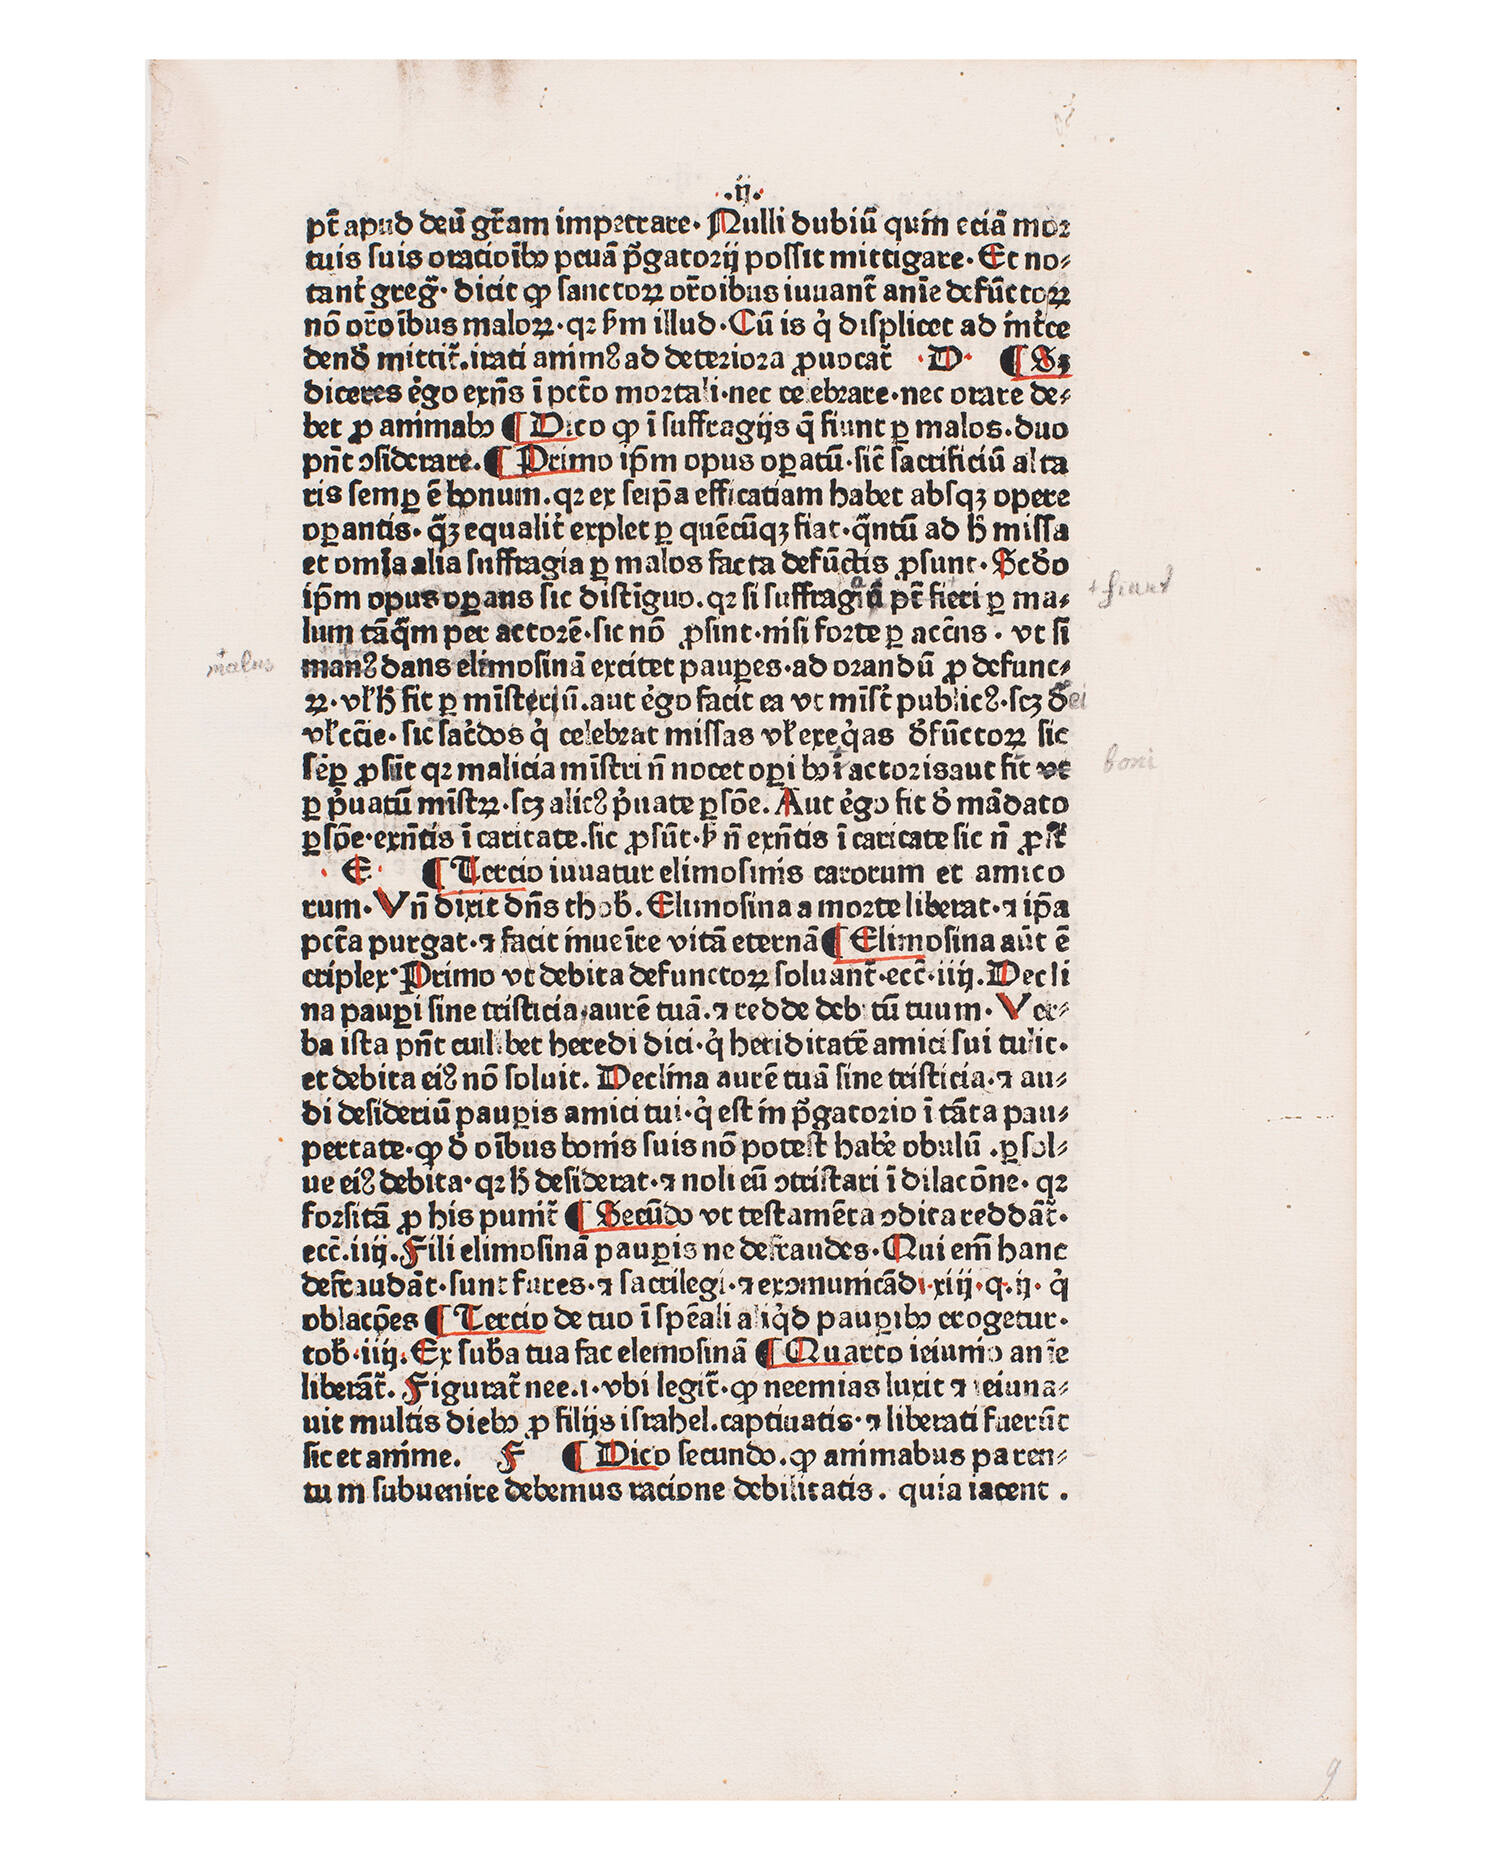 ·ij·
pt̄ apud deū gr̄am impetrare· Nulli dubiū quin eciā mor
tuis suis oracioību₉ penā p̄gatorij possit mittigare· Et no⸗
tant̄ greg̃· dicit ꝙ sanctoꝝ or̄oibus iuuant̄ anīe defūctoꝝ
nō or̄oibus maloꝝ· qꝛ ẜm illud· Cū is q̇ displicet ad int̄ce
dend̄ mittit̄· irati animꝰ ad deteriora ꝓuocat̄ ·D· ¶ Sꝫ
diceres ėgo exn̄s ī pctō mortali· nec celebrare· nec orare de⸗
bet ꝓ animab₉ ¶ Dico ꝙ ī suffragijs q̄ fiunt ꝑ malos· duo
pn̄t ꝯsiderare· ¶ Primo ip̄m opus oꝑatū· sic̄ sacrificiū alta
ris semꝑ ē bonum· qꝛ ex seip̄a efficatiam habet absqꝫ opere
oꝑantis· q̄ꝫ equalit̄ explet ꝑ quēcūqꝫ fiat· q̄ntū ad ħ missa
et omīa alia suffragia ꝑ malos facta defūctis ꝓsunt· Scd̄o
ip̄m opus oꝑans sic distīguo· qꝛ si suffragiū pt̄ fieri ꝑ ma⸗
+ fiant
lum tāq̄m per actorē· sic nō ꝓsint· nisi forte ꝑ accn̄s· vt si
malus
manꝰ dans elimosinā excitet pauꝑes· ad orandū ꝓ defunc⸗
ꝝ· vł ħ fit ꝑ mīsteriū· aut ėgo facit ea vt mīst̄ publicꝰ· sꝫ dei
vł ecc̄ie· sic sac̄dos q̇ celebrat missas vł exeq̇as d̄fūctoꝝ sic
sēꝑ ꝓsūt qꝛ malicia mīstri n̄ nocet oꝑi bōi actoris aut fit vt
boni
ꝑ p̄uatū mīstꝝ· sꝫ alicꝰ p̄uate ꝑsōe· Aut ėgo fit d̄ mādato
ꝑsōe· exn̄tis ī caritate· sic ꝓsūt· ẜ n̄ exn̄tis ī caritate sic n̄ ꝓsūt
·E· ¶ Tercio iuuatur elimosinis carorum et amico
rum· Vn̄ dixit dn̄s thob̄· Elimosina a morte liberat· ⁊ ip̄a
pctā purgat· ⁊ facit inuenīre vitā eternā ¶ Elimosina aūt ē
triplex· Primo vt debita defunctoꝝ soluant̄· ecc̄· iiij· Decli
na pauꝑi sine tristicia· aurē tuā· ⁊ redde debitū tuum· Ver⸗
ba ista pn̄t cuilibet heredi dici· q̇ heriditatē amici sui tulit·
et debita eiꝰ nō soluit· Declina aurē tuā sine tristicia· ⁊ au⸗
di desideriū pauꝑis amici tui· q̇ est in p̄gatorio ī tāta pau⸗
pertate· ꝙ d̄ oībus bonis suis nō potest habe̊ obulū· ꝑsol⸗
ue eiꝰ debita· qꝛ ħ desiderat· ⁊ noli eū ꝯtristari ī dilacōne· qꝛ
forsitā ꝓ his punit̄ ¶ Secūdo vt testamēta ꝯdita reddāt̄·
ecc̄· iiij· Fili elimosinā pauꝑis ne defraudes· Qui em̄ hanc
defraudāt· sunt fures· ⁊ sacrilegi· ⁊ exꝯmunicādi· xiij· q· ij· q̇
oblacōes ¶ Tercio de tuo ī spēali aliq̇d pauꝑib₉ erogetur·
tob̄· iiij· Ex sub̄a tua fac elemosinā ¶ Quarto ieiunio anīe
liberāt̄· Figurat̄ nee· i· vbi legit̄· ꝙ neemias luxit ⁊ ieiuna⸗
uit multis dieb₉ ꝓ filijs israhel· captiuatis· ⁊ liberati fuerūt
sic et anime· F ¶ Dico secundo· ꝙ animabus paren⸗
tum subuenire debemus racione debilitatis· quia iacent·
9